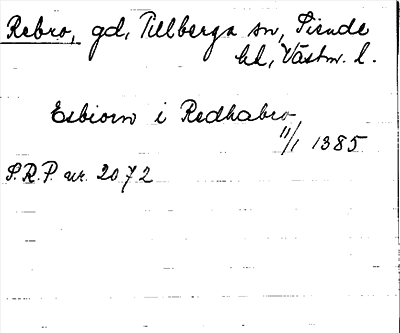 Rebro, gd, Tillberga sn, Siende
hd, Västm. l.
Esbiorn i Redhabro
11/1 1385
S.R.P. nr. 2072